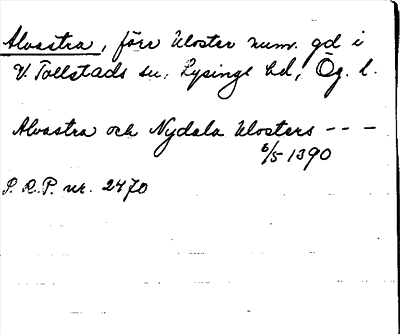 Alvastra, förr kloster num. gd i
V. Tollstads sn, Lysings hd, Ög. l.
Alvastra och Nydala klosters - - -
6/5 1390
S.R.P. nr. 2470